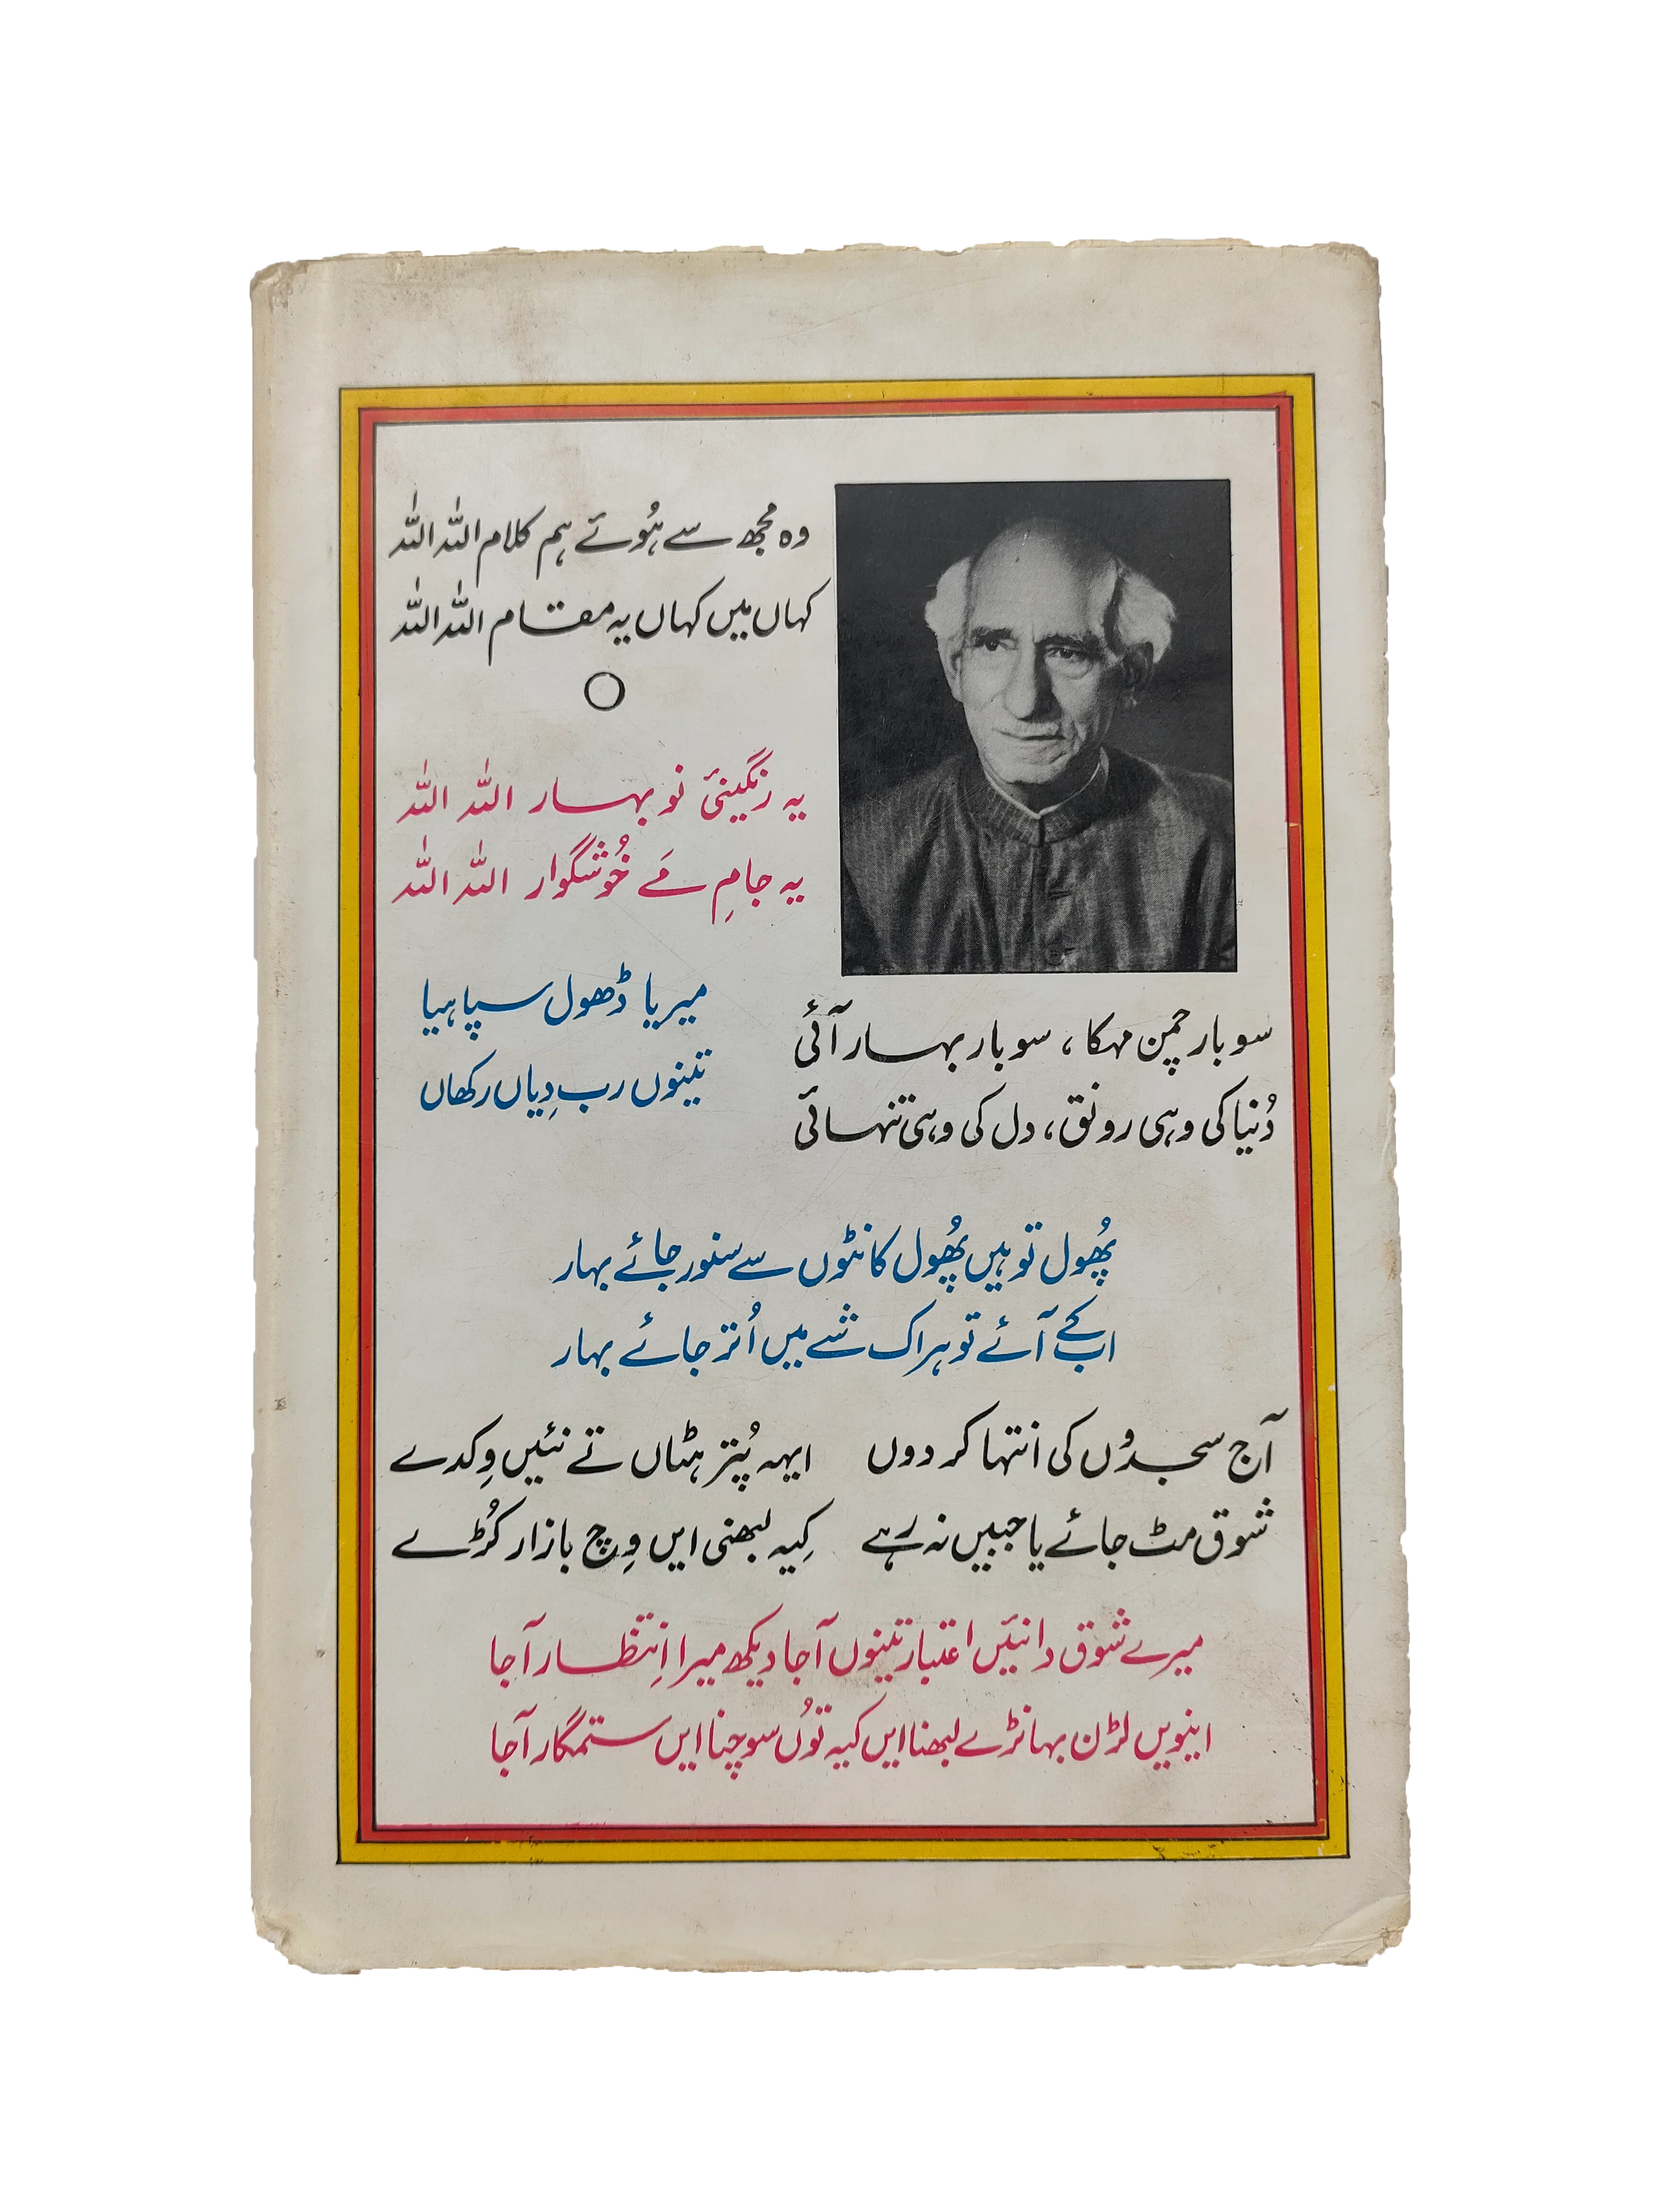 وہ مجھ سے ہُوئے ہم کلام اللہ اللہ
کہاں میں کہاں یہ مقام اللہ اللہ
یہ رنگینئ نو بہار اللہ اللہ
یہ جامِ مَے خُوشگوار اللہ اللہ
میریا ڈھول سپاہیا
تینوں رب دِیاں رکھاں
سو بار چمن مہکا ، سو بار بہار آئی
دُنیا کی وہی رونق، دل کی وہی تنہائی
پُھول تو ہیں پُھول کانٹوں سے سنور جائے بہار
اب کے آئے تو ہر اک شے میں اُتر جائے بہار
آج سجدوں کی انتہا کر دوں
شوق مٹ جائے یا جبیں نہ رہے
ایہہ پُتر ہٹاں تے نئیں وِکدے
کِیہ لبھنی ایں وِچ بازار کُڑے
میرے شوق دا نئیں اعتبار تینوں آجا دیکھ میرا اِنتظار آجا
اینویں لڑن بہانڑے لبھنا ایں کیہ تُوں سوچنا ایں ستمگار آجا